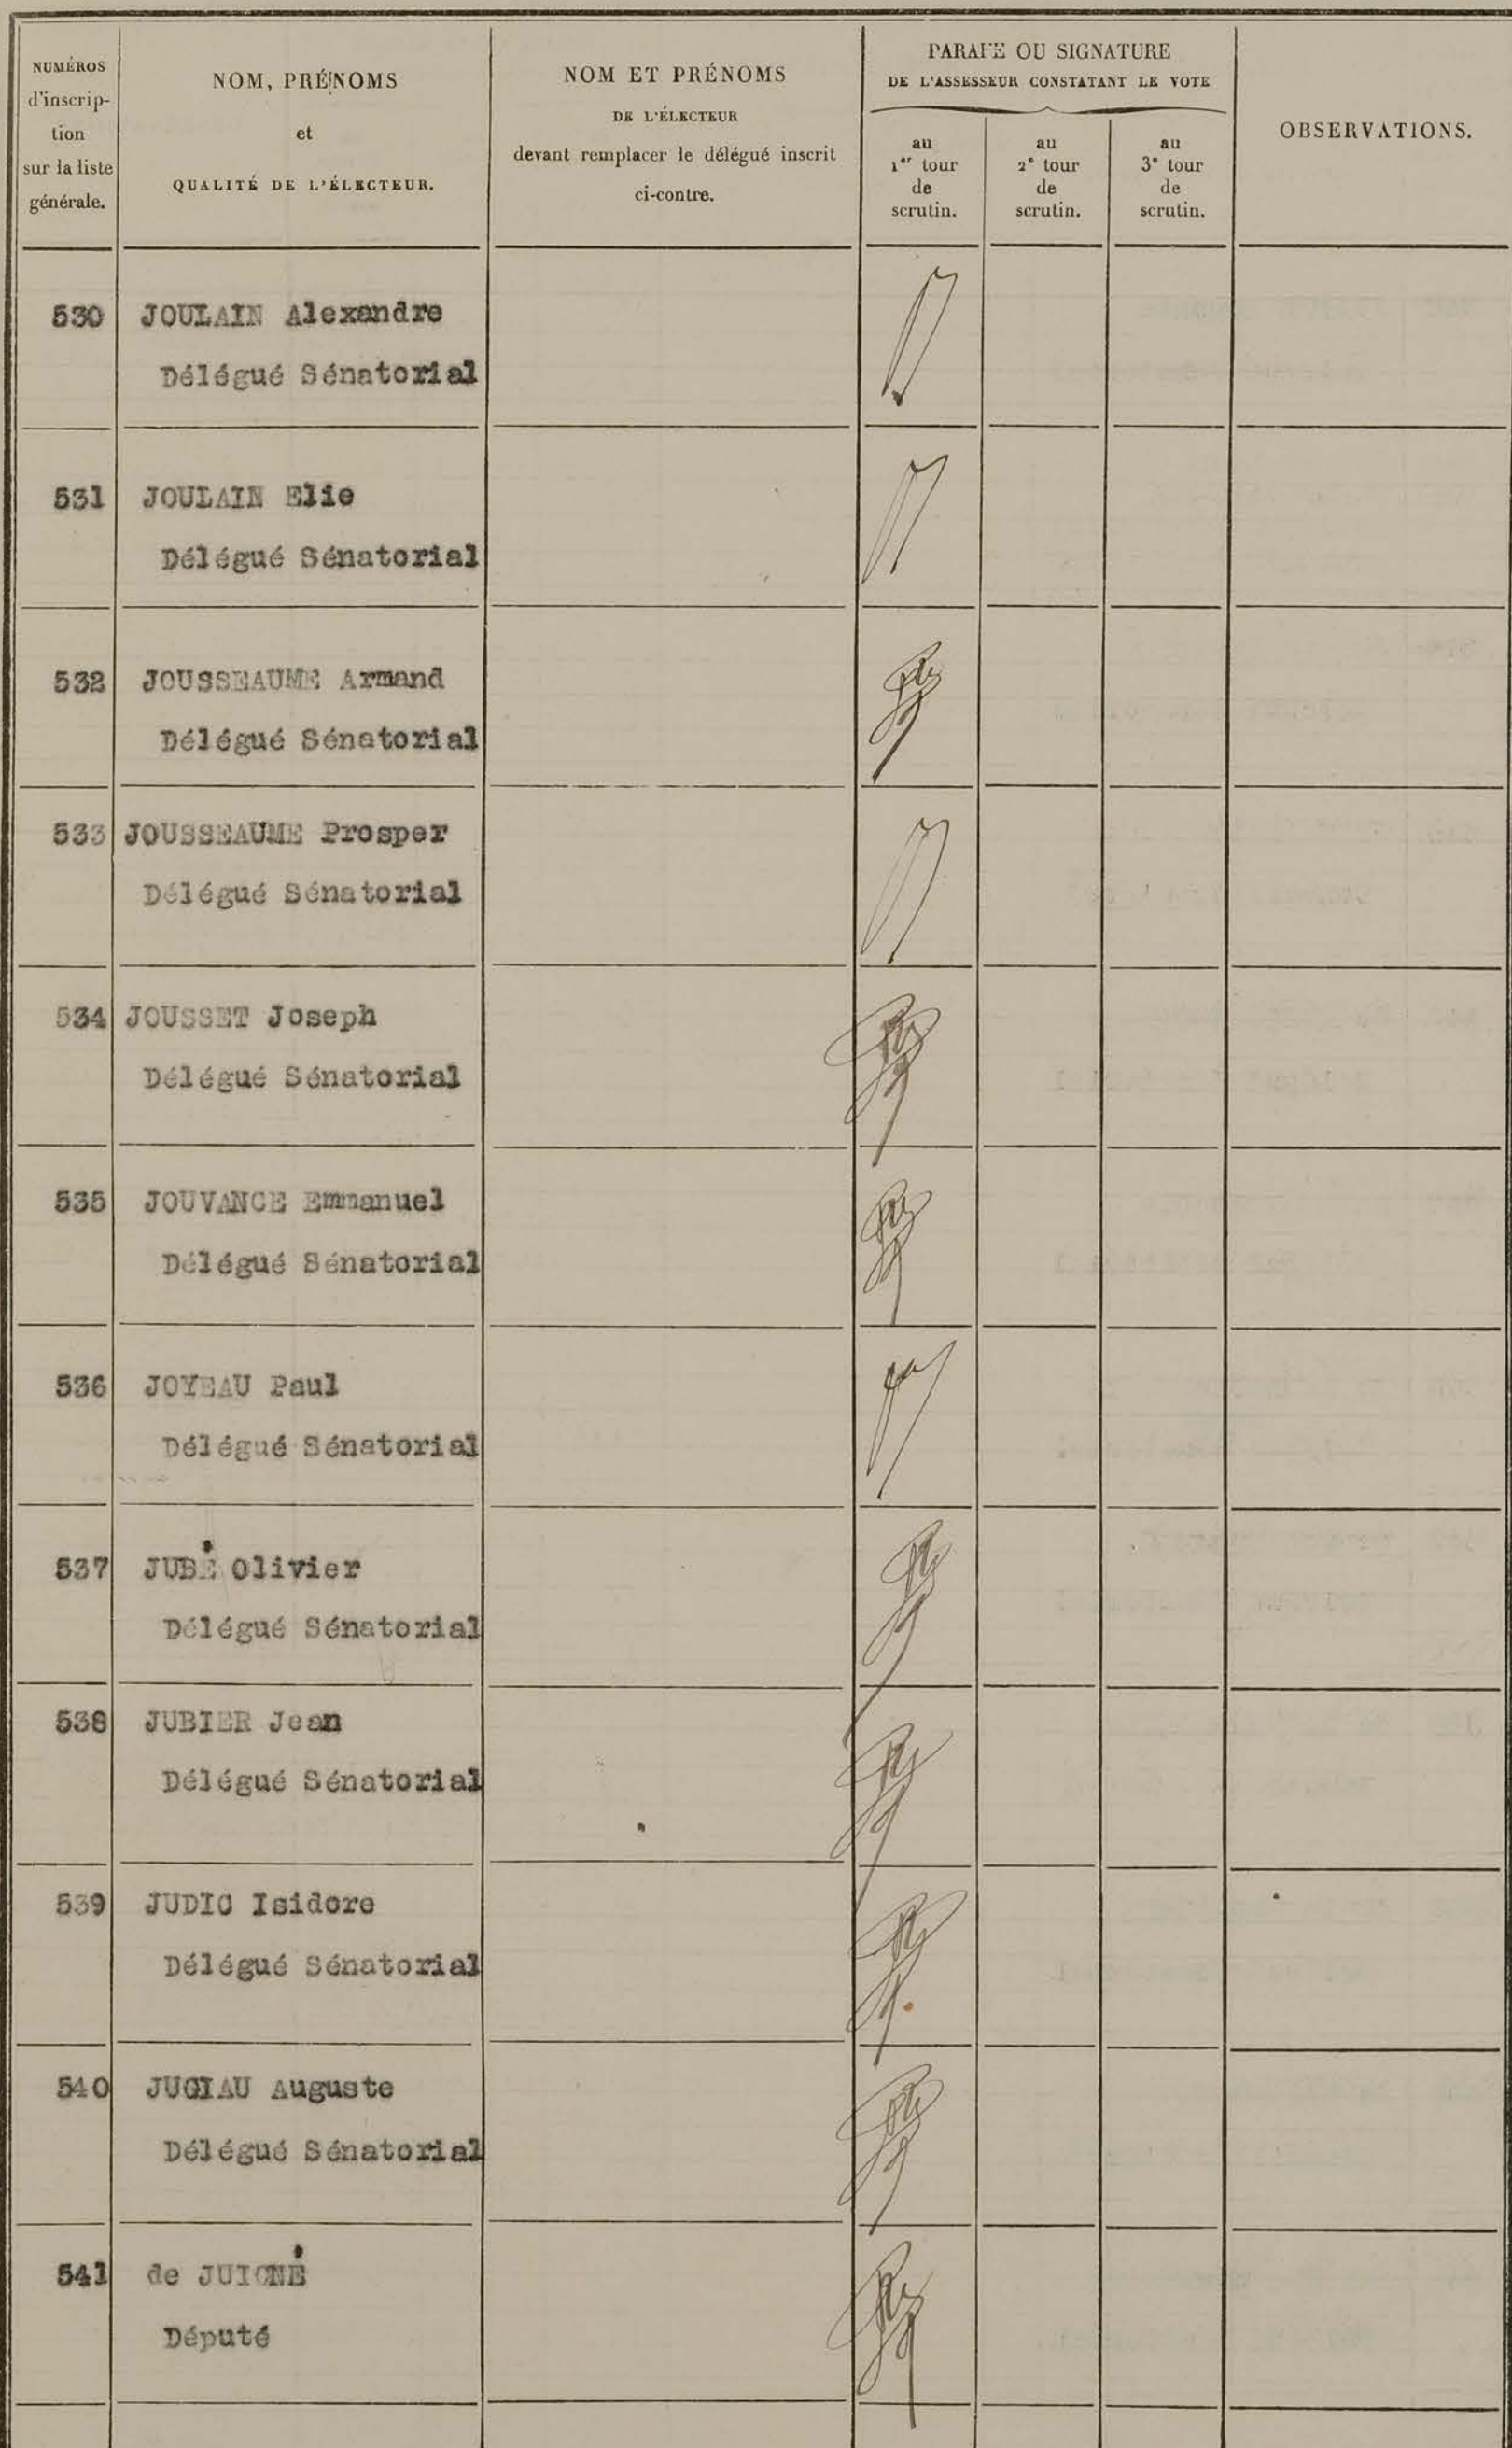 NUMÉROS
d'inscrip-
tion
sur la liste
générale.
NOM, PRÉNOMS
et
QUALITÉ DE L'ÉLECTEUR.
NOM ET PRÉNOMS
DE L'ÉLECTEUR
devant remplacer le délégué inscrit
ci-contre.
PARAFE OU SIGNATURE
DE L'ASSESSEUR CONSTATANT LE VOTE
au
1er tour
de
scrutin.
au
2e tour
de
scrutin.
au
3e tour
de
scrutin.
OBSERVATIONS.
530 JOULAIN Alexandre
Délégué Sénatorial
531 JOULAIN Elie
Délégué Sénatorial
532 JOUSSEAUME Armand
Délégué Sénatorial
533 JOUSSEAUME Prosper
Délégué Sénatorial
534 JOUSSET Joseph
Délégué Sénatorial
535 JOUVANCE Emmanuel
Délégué Sénatorial
536 JOYEAU Paul
Délégué Sénatorial
537 JUBÉ Olivier
Délégué Sénatorial
538 JUBIER Jean
Délégué Sénatorial
539 JUDIC Isidore
Délégué Sénatorial
540 JUGIAU Auguste
Délégué Sénatorial
541 de JUIGNÉ
Député